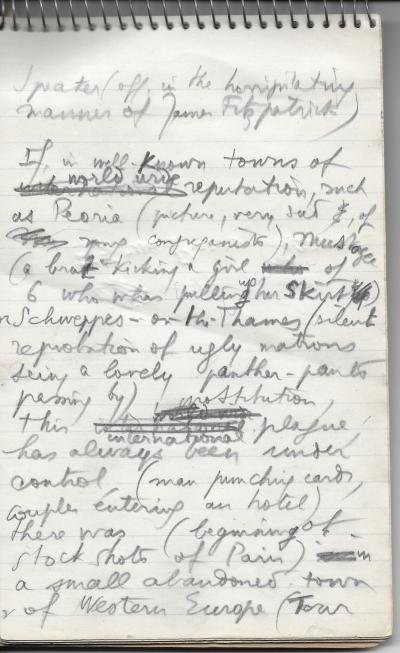 Speaker (off, in the horripilating
manner of James Fitzpatrick)
If, in well-known towns of
world wide
reputation, such
as Peoria (picture, very sad &, of
some congreganists), Muskogee
(a brat kicking a girl of
6 who was pulling up her skirt)
Schweppes-on-th-Thames (silent
reprobation of ugly matrons
seing a lovely panther-pants
passing by) prostitution,
this international plague,
has always been under
control, (man punching cards,
couples entering an hotel)
there was (beginning of
stock shots of Paris) in
a small abandoned town
of Western Europe (Tour